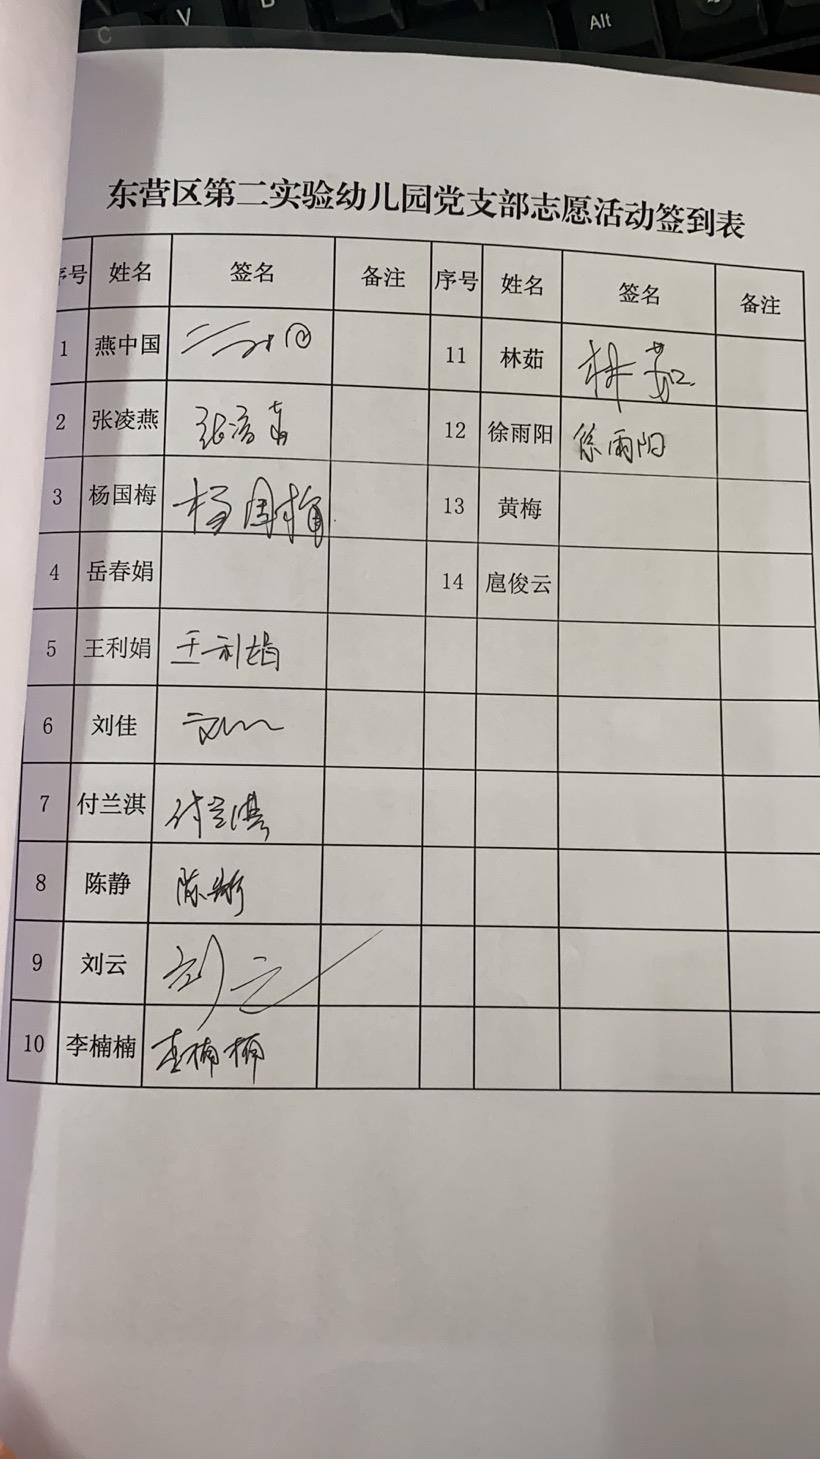 C V Alt
东营区第二实验幼儿园党支部志愿活动签到表
序号 姓名 签名 备注 序号 姓名 签名 备注
1 燕中国 11 林茹 林茹
2 张凌燕 12 徐雨阳 徐雨阳
3 杨国梅 杨国梅 13 黄梅
4 岳春娟 14 扈俊云
5 王利娟 王利娟
6 刘佳
7 付兰淇 付兰淇
8 陈静 陈静
9 刘云 刘云
10 李楠楠 李楠楠